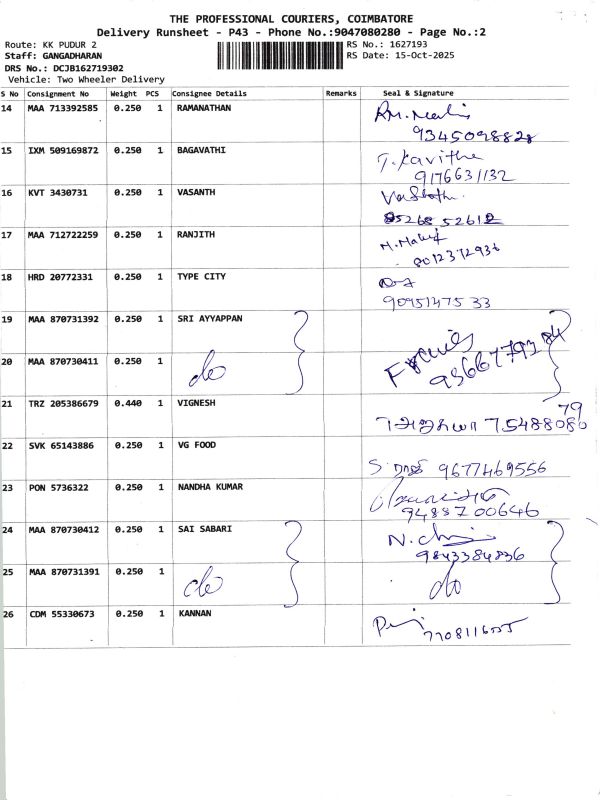 THE PROFESSIONAL COURIERS, COIMBATORE
Delivery Runsheet - P43 - Phone No.:9047080280 - Page No.:2
Route: KK PUDUR 2
RS No.: 1627193
Staff: GANGADHARAN
RS Date: 15-Oct-2025
DRS No.: DCJB162719302
Vehicle: Two Wheeler Delivery
S No Consignment No Weight PCS Consignee Details Remarks Seal & Signature
14 MAA 713392585 0.250 1 RAMANATHAN
9345098828
15 IXM 509169872 0.250 1 BAGAVATHI T. Kavitha
9176631132
16 KVT 3430731 0.250 1 VASANTH Vasanth.
85268 52612
17 MAA 712722259 0.250 1 RANJITH
8012372936
18 HRD 20772331 0.250 1 TYPE CITY
9095147533
19 MAA 870731392 0.250 1 SRI AYYAPPAN
20 MAA 870730411 0.250 1 do
9366779384
21 TRZ 205386679 0.440 1 VIGNESH
75488080
79
22 SVK 65143886 0.250 1 VG FOOD
9677469556
23 PON 5736322 0.250 1 NANDHA KUMAR
9488700646
24 MAA 870730412 0.250 1 SAI SABARI
9843384836
25 MAA 870731391 0.250 1 do do
26 CDM 55330673 0.250 1 KANNAN